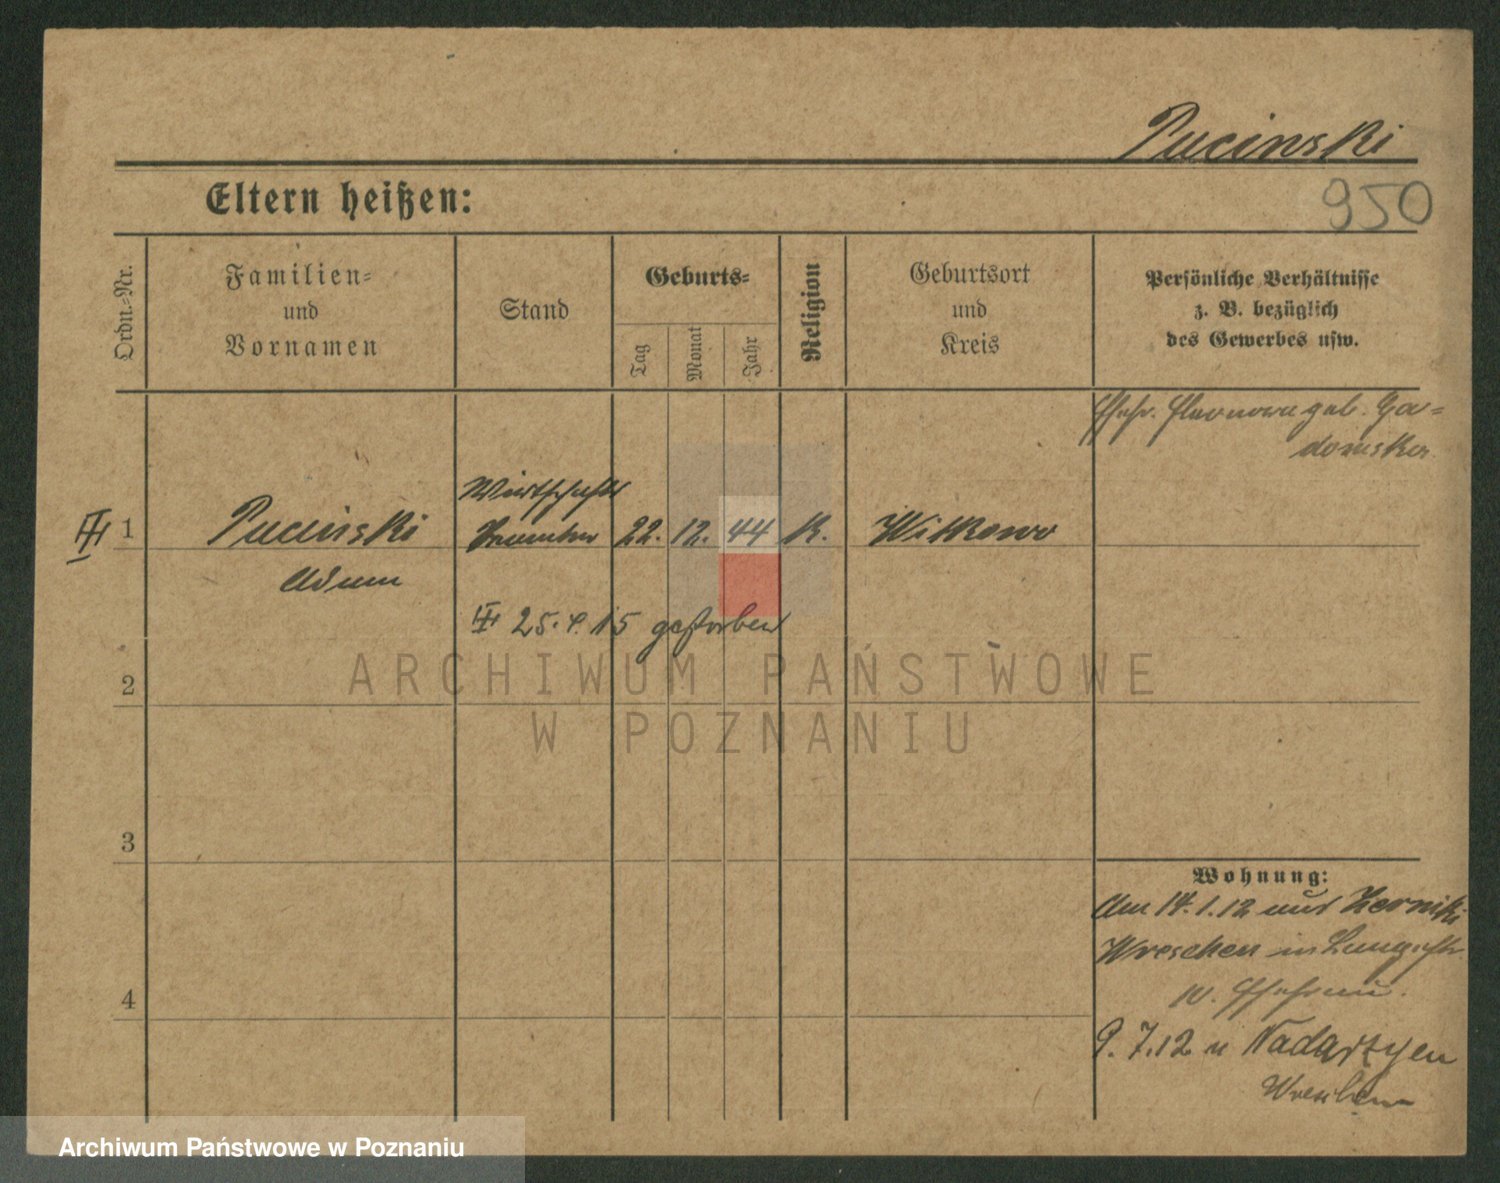 Pucinski
950
Eltern heißen:
Ordn.-Nr.
Familien-
und
Vornamen
Stand
Geburts-
Tag
Monat
Jahr
Religion
Geburtsort
und
Kreis
Persönliche Verhältnisse
z. B. bezüglich
des Gewerbes usw.
geb. Ga-
domska
1
Pucinski
Wirtschafts
22. 12. 44 K. Witkowo
Adam
25. 4. 15 gestorben
ARCHIWUM PAŃSTWOWE
W POZNANIU
2
3
4
Wohnung:
Am 14.1.12 aus Zerniki
Wreschen in
9.7.12 n Nadarzycen
Wreschen
Archiwum Państwowe w Poznaniu